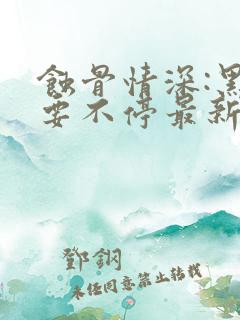 蝕骨情深:黑
要不停最新
鄧鋼
未經同意禁止轉載